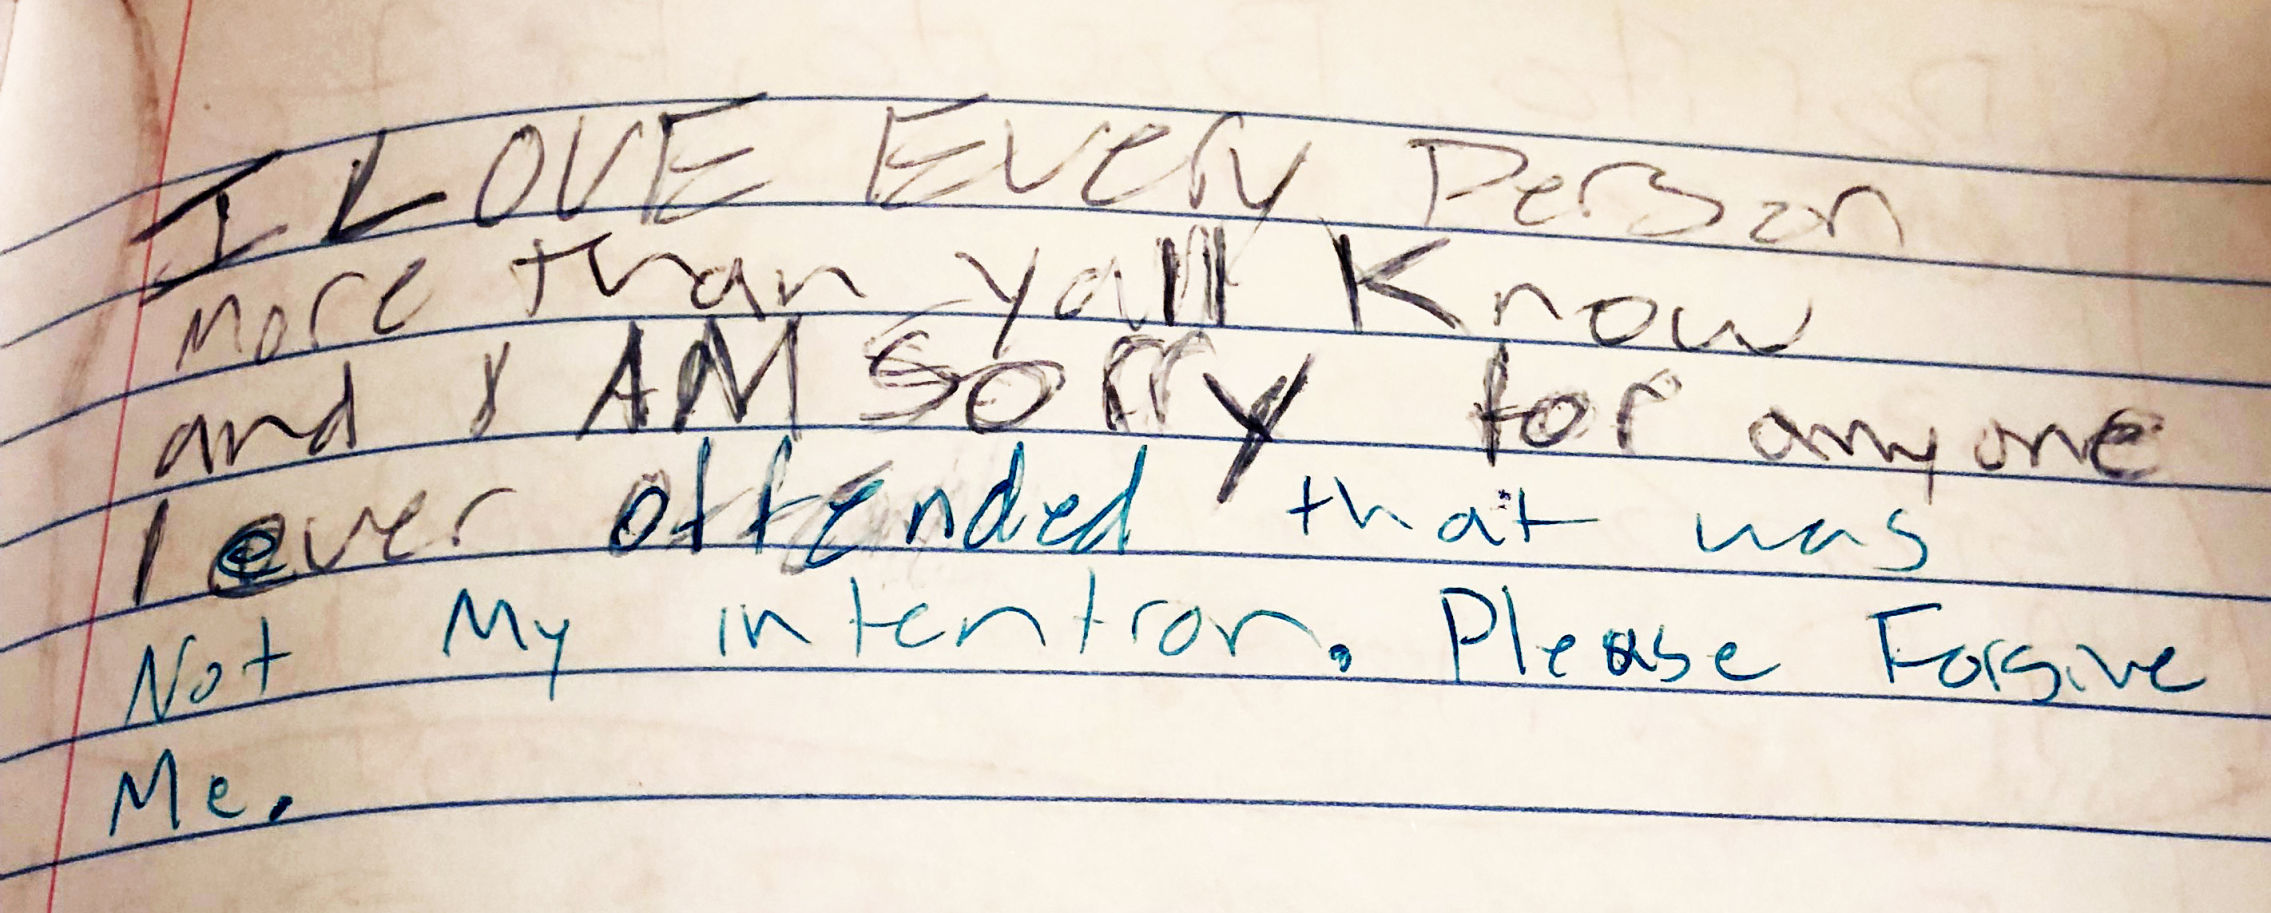 I LOVE Every Person
more than yall Know
and I AM Sorry for anyone
I ever offended that was
Not My intention. Please Forgive
Me.